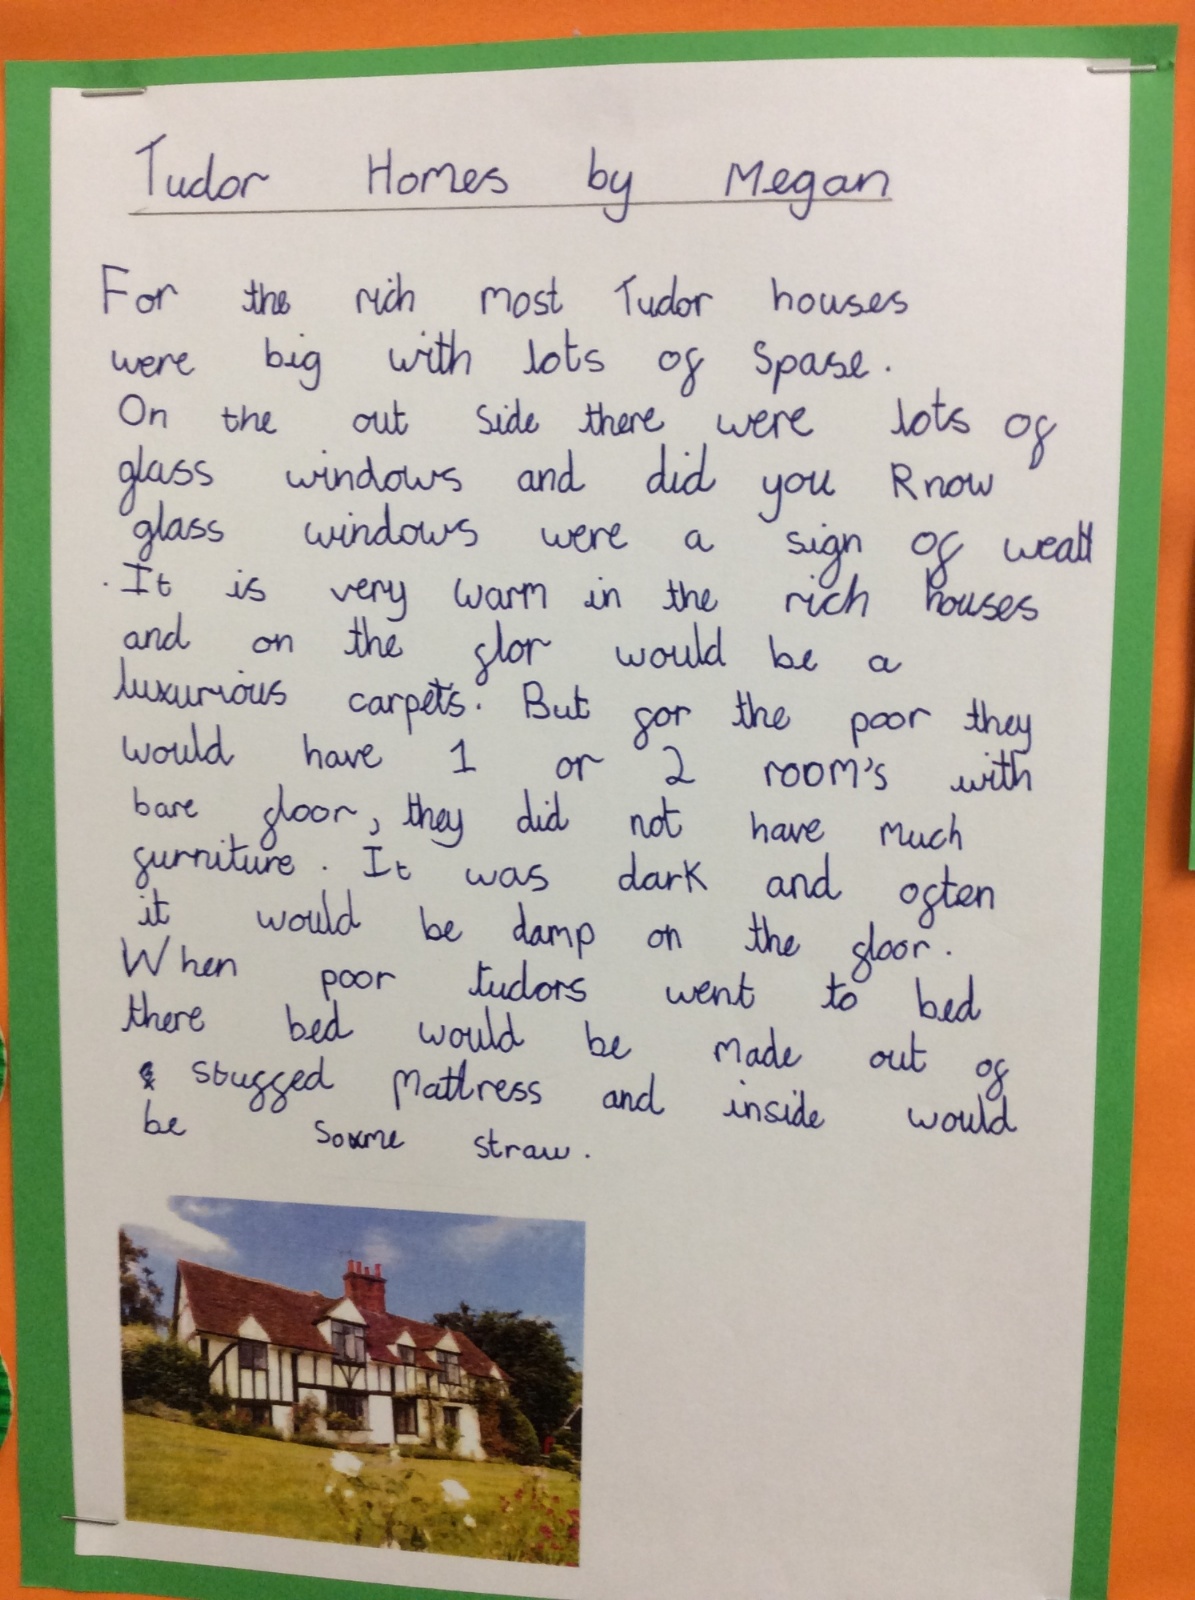 Tudor Homes by Megan
For the rich most Tudor houses
were big with lots of Spase.
On the out side there were lots of
glass windows and did you know
glass windows were a sign of wealt
. It is very warm in the rich houses
and on the flor would be a
luxurious carpets. But for the poor they
would have 1 or 2 room's with
bare floor, they did not have much
furniture. It was dark and often
it would be damp on the floor.
When poor tudors went to bed
there bed would be made out of
stuffed mattress and inside would
be some straw.